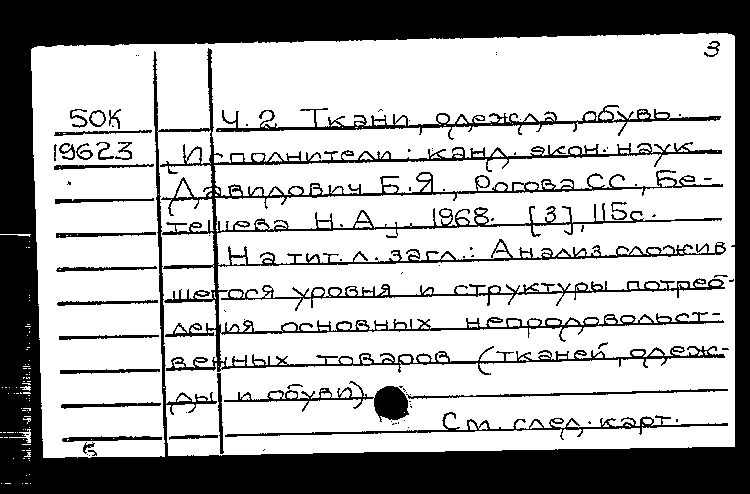 3
50К Ч.2 Ткани, одежда, обувь.
19623 Исполнители: канд. экон. наук
Давидович Б.Я., Рогова С.С., Бе-
тешева Н.А., 1968. [3], 115с.
На тит. л. загл.: Анализ сложив-
шегося уровня и структуры потреб-
ления основных непродовольст-
венных товаров (тканей, одеж-
ды и обуви)
См. след. карт.
Б